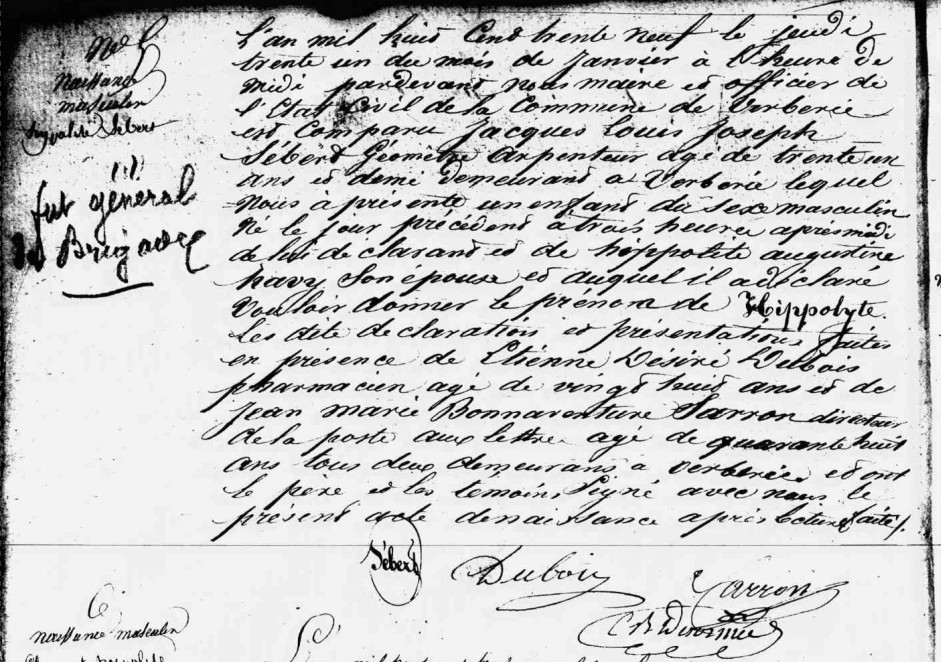 Naissance
masculin
hyppolite Sébert
(1)
fut général
de Brigade
L'an mil huit Cent trente neuf le jeudi
trente un du mois de janvier à l'heure de
midi pardevant nous maire et officier de
l'Etat Civil de la Commune de Verberie
est Comparu Jacques Louis Joseph
Sébert Géomètre arpenteur agé de trente un
ans et demi demeurant a Verberie lequel
nous à présenté un enfant du sexe masculin
Né le jour précédent à trois heures après midi
de lui déclarant et de hippolite augustine
havy Son épouse et auquel il a déclaré
vouloir donner le prénom de Hippolyte.
les dite déclaration et présentation faites
en présence de Etienne Désiré Dubois
pharmacien agé de vingt huit ans et de
jean marie Bonnaventure Sarron directeur
de la poste aux lettre agé de quarante huit
ans tous deux demeurans a verberie et ont
le père et les témoins Signé avec nous le
présent acte de naissance après lecture faite /.
Sébert
Dubois
Sarron
naissance masculin
L'